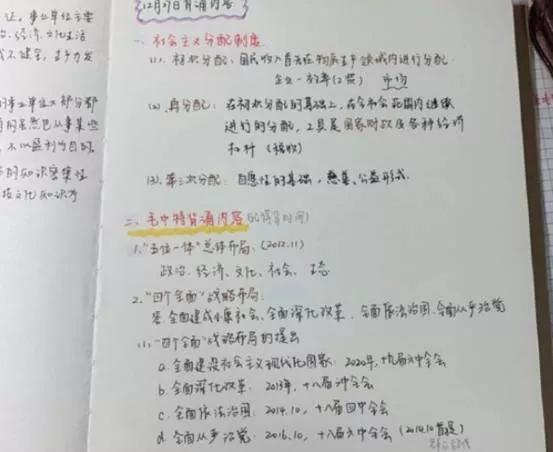 证,事业单位主要
经济、文化生活
12月9日背诵内容
一、社会主义分配制度
(1). 初次分配:国民收入首先在物质生产领域内进行分配.
企业—效率(工资)
(2). 再分配:在初次分配的基础上,在全社会范围内继续
进行的分配,工具是国家财政及各种经济
杠杆(税收)
(3). 第三次分配:自愿性的基础,慈善、公益形式.
二、毛中特背诵内容(记得背时间)
1."五位一体"总体布局:(2012.11)
政治、经济、文化、社会、生态
2."四个全面"战略布局:
全面建成小康社会、全面深化改革、全面依法治国、全面从严治党
(1)."四个全面"战略布局的提出
a.全面建设社会主义现代化国家:2020年,十九届五中全会
b.全面深化改革:2013年,十八届三中全会
c.全面依法治国:2014.10,十八届四中全会
d.全面从严治党:2016.10,十八届六中全会(2014.10首提)